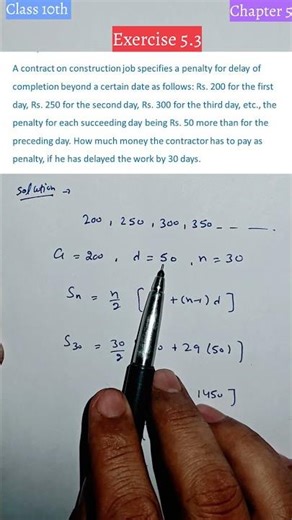 Class 10th
Chapter 5
Exercise 5.3
A contract on construction job specifies a penalty for delay of
completion beyond a certain date as follows: Rs. 200 for the first
day, Rs. 250 for the second day, Rs. 300 for the third day, etc., the
penalty for each succeeding day being Rs. 50 more than for the
preceding day. How much money the contractor has to pay as
penalty, if he has delayed the work by 30 days.
Solution →
200, 250, 300, 350 - - -.
a = 200, d = 50, n = 30
Sn = n/2 [ + (n-1) d ]
S30 = 30/2 0 + 29 (50) ]
1450 ]